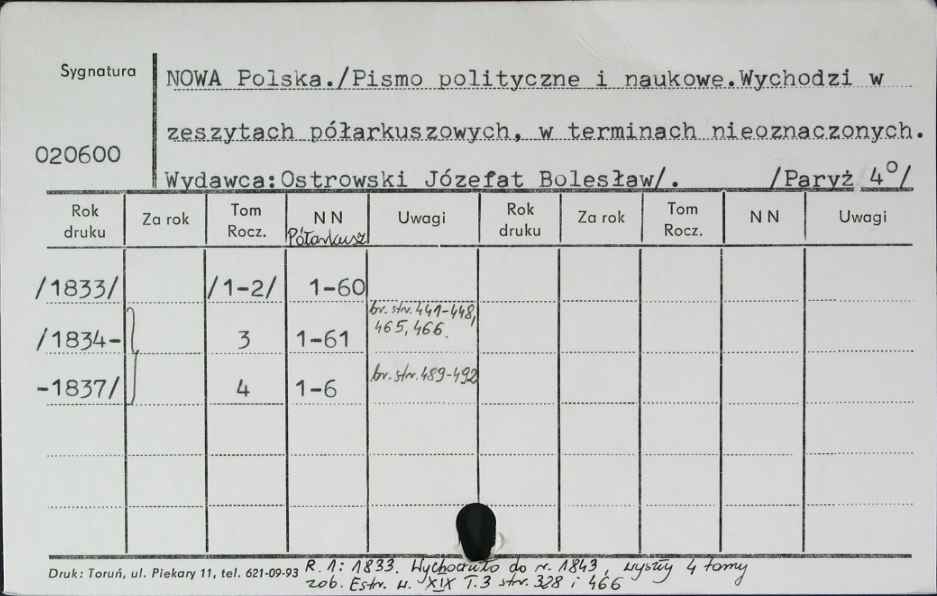 Sygnatura
NOWA Polska./Pismo polityczne i naukowe.Wychodzi w
zeszytach półarkuszowych, w terminach nieoznaczonych.
020600
Wydawca:Ostrowski Józefat Bolesław/. /Paryż 4°/
Rok druku Za rok Tom Rocz. NN Półarkusz Uwagi Rok druku Za rok Tom Rocz. NN Uwagi
/1833/ /1-2/ 1-60
br. str. 441-448,
/1834- 3 1-61 465, 466.
-1837/ 4 1-6 br. str. 489-492
Druk: Toruń, ul. Piekary 11, tel. 621-09-93
R. 1: 1833. Wychodziło do r. 1843, wyszły 4 tomy
zob. Estr. w. XIX T.3 str. 328 i 466